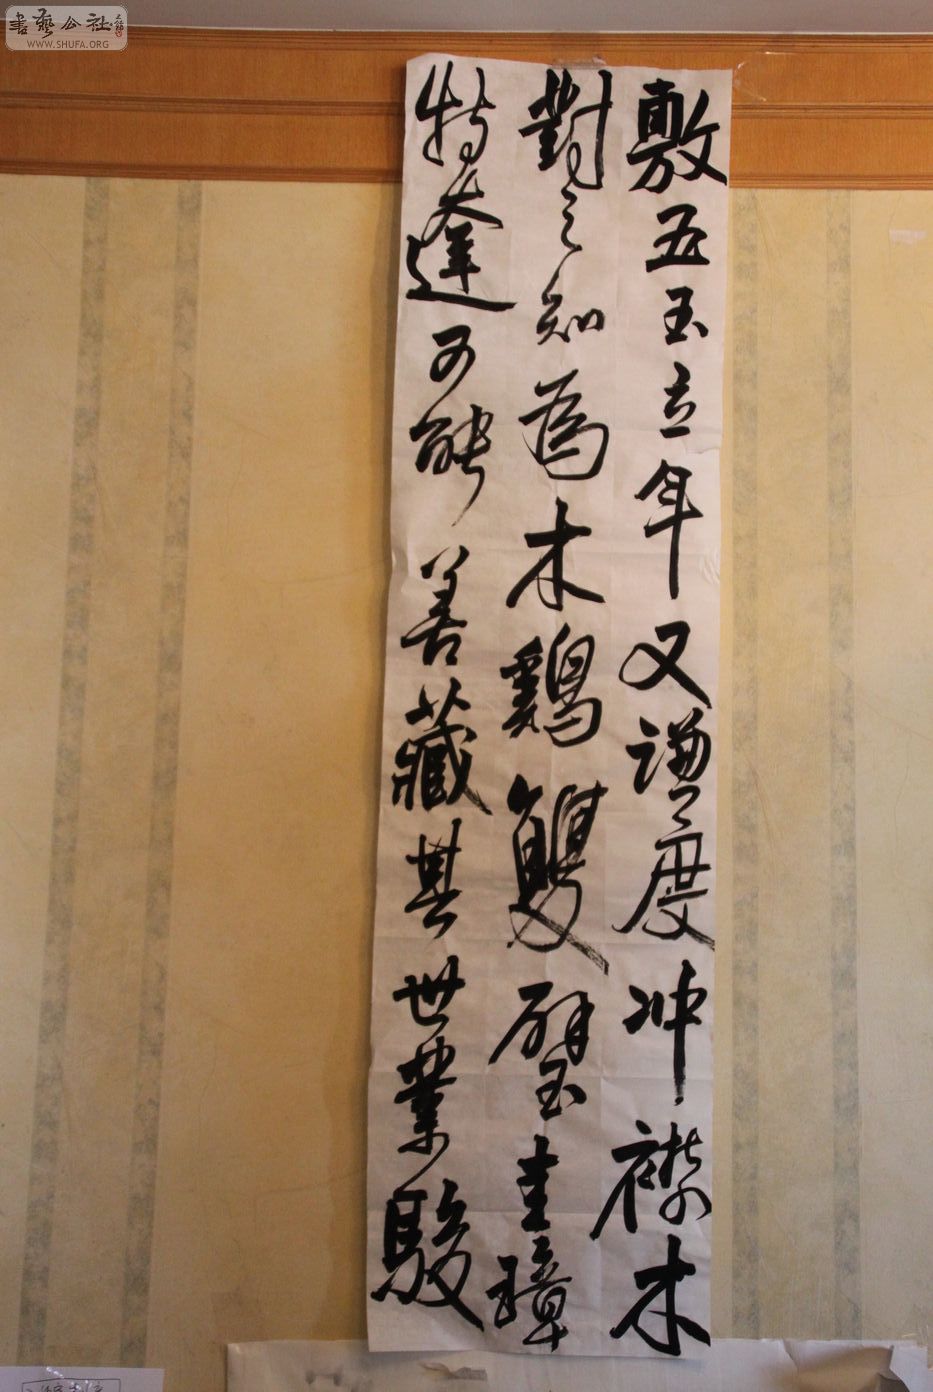 敷五玉立年又謙度冲襟木
對之知為木鷄雙璧圭璋
特達可能善藏其世業駿
書藝公社
WWW.SHUFA.ORG